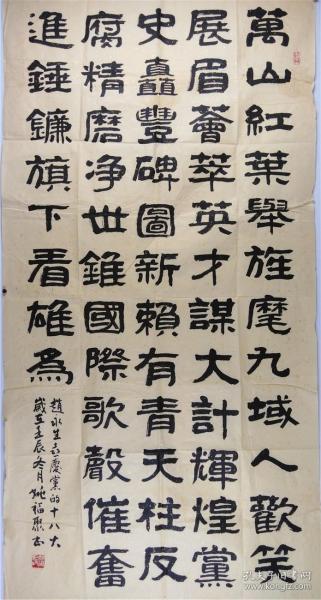 萬山紅葉舉旌麾九域人歡笑
展眉薈萃英才謀大計輝煌黨
史矗豐碑圖新賴有青天柱反
腐精磨净世錐國際歌聲催奮
進錘鐮旗下看雄為
趙永生喜慶黨的十八大
歲在壬辰冬月福聚书
孔夫子旧书网